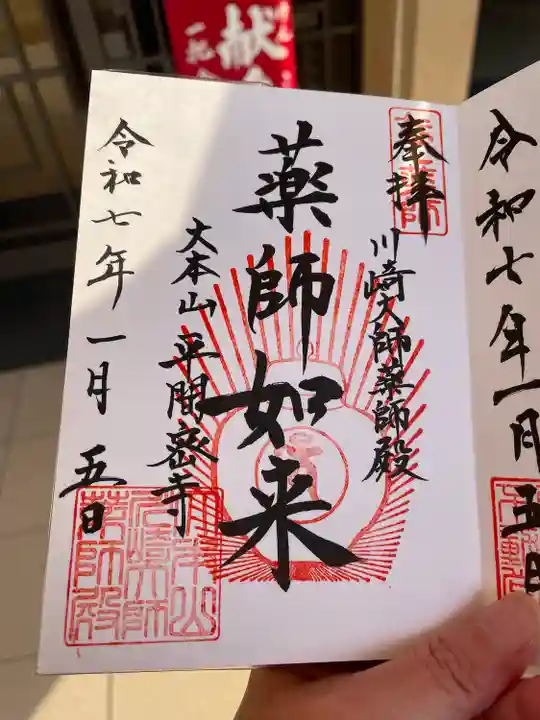 献
令和七年一月五日
奉拝
川崎大師薬師殿
薬師如来
大本山平間密寺
令和七年一月五日